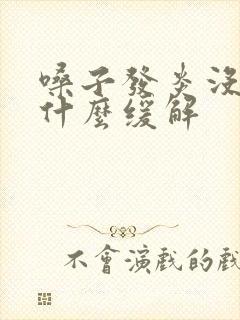 嗓子發炎沒
什麼缓解
不會演戲的戲